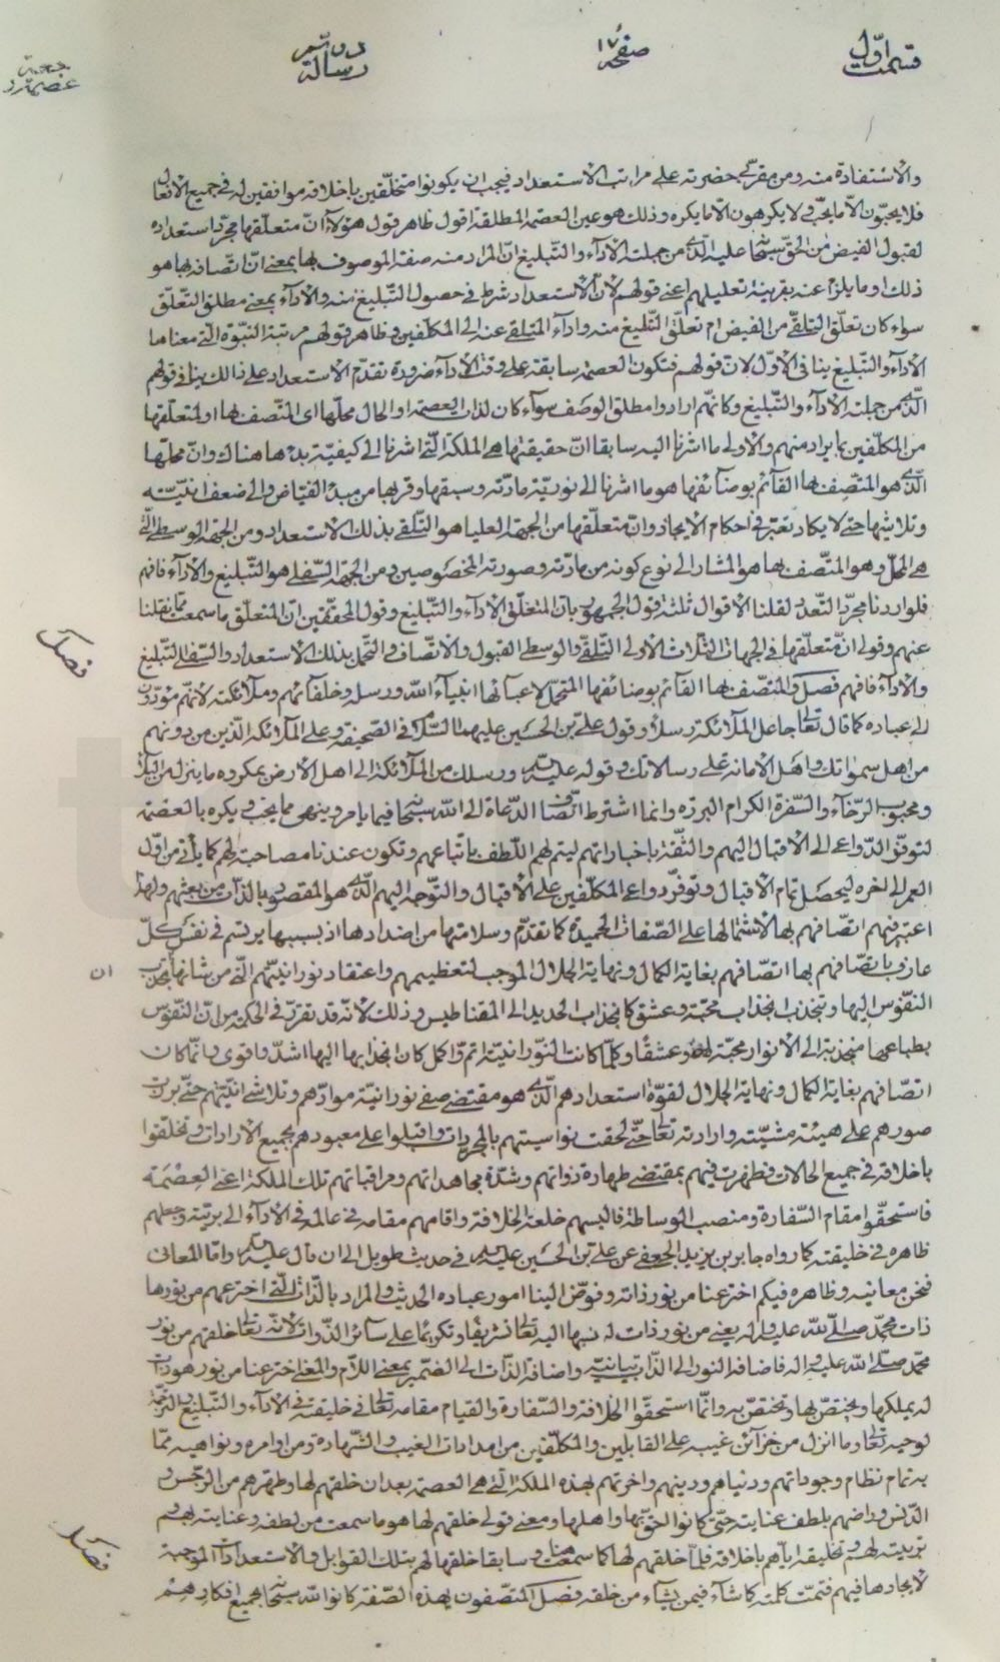 قسمت اوّل
صفحه ١٧
رسالة
والاستفادة منه ومن مقرّبي حضرته على مراتب الاستعداد فيجب ان يكونوا متخلّقين باخلاقه موافقين له في جميع الافعال
فلا يحبّون الا ما يحبّ ولا يكرهون الا ما يكره وذلك هو عين العصمة المطلقة اقول ظاهر قول هؤلاء انّ متعلّقها مجرّد استعداده
لقبول الفيض من الحقّ سبحانه عليه الّذي من جملته الاداء والتّبليغ انّ المراد منه صفة الموصوف بها بمعنى انّ اتّصافه بها هو
ذلك او ما يلزم عنه بقرينة تعليلهم اعني قولهم لانّ الاستعداد شرط في حصول التّبليغ منه والاداء بمعنى مطلق التعلّق
سواء كان تعلّق التلقّي من الفيض ام تعلّق التّبليغ منه واداء المتلقّى عنه الى المكلّفين وظاهر قولهم مرتبة النّبوّة الّتي معناها
الاداء والتّبليغ ينافي الاوّل لانّ قولهم فتكون العصمة سابقة على وقت الاداء ضرورة تقدّم الاستعداد على ذالك ينافي قولهم
الّذي من جملته الاداء والتّبليغ وكانّهم ارادوا مطلق الوصف سواء كان لذات العصمة او الحال محلّها اى المتّصف بها او لمتعلّقها
من المكلّفين بما يراد منهم والاولى ما اشرنا اليه سابقا انّ حقيقتها هي الملكة الّتي اشرنا الى كيفيّة بدءها هناك وانّ محلّها
الّذي هو المتّصف بها القائم بوصائفها هو ما اشرنا الى نوريّة مادّته وسبقها وقربها من مبدء الفيّاض والى ضعف انّيّته
وتلاشيها حتّى لا يكاد تعتبر في احكام الايجاد وانّ متعلّقها من الجهة العليا هو التلقّي بذلك الاستعداد ومن الجهة الوسطى الّتي
هي المحلّ وهو المتّصف بها هو المشار الى نوع كونه من مادّته وصورته المخصوصين ومن الجهة السّفلى هو التّبليغ والاداء فافهم
فلو اردنا مجرّد التّعدّد لقلنا الاقوال ثلثة قول الجمهور بانّ المتعلّق الاداء والتّبليغ وقول المحقّقين انّ المتعلّق ما سمعت ممّا نقلنا
عنهم وقولي انّ متعلّقها في الجهات الثّلاث الاولى التلقّي والوسطى القبول والاتّصاف في التّحمّل بذلك الاستعداد والسّفلى التّبليغ
فصل
والاداء فافهم فصل والمتّصف بها القائم بوصائفها المتحمّل لاعبائها انبياء الله ورسله وخلفائهم وملائكته لانّهم مؤدّون
الى عباده كما قال تعالى جاعل الملائكة رسلا وقول علي بن الحسين عليهما السّلام في الصّحيفة وعلى الملائكة الّذين من دونهم
من اهل سمواتك واهل الامانة على رسالاتك وقوله عليه السلام ورسلك من الملائكة الى اهل الارض بمكروه ما ينزل من البلاء
ومحبوب الرّخاء والسّفرة الكرام البررة وانما اشترط اتّصاف الدّعاة الى الله سبحانه فيما يامر وينهى مما يحبّ ويكره بالعصمة
لتوفّر الدّواعي الى الاقبال اليهم والثّقة باخباراتهم ليتم لهم اللّطف باتباعهم وتكون عندنا مصاحبة لهم كما ياتي من اوّل
العمر الى اخره ليحصل تمام الاقبال وتوفّر دواعي المكلّفين على الاقبال والتوجّه اليهم الّذي هو المقصود بالذّات من بعثهم ولهذا
اعتبر فيهم اتّصافهم بها لاشتمالها على الصّفات الحميدة كما تقدّم وسلامتها من اضدادها اذ بسببها يرتسم في نفس كلّ
عارف باتّصافهم بها اتّصافهم بغاية الكمال ونهاية الجلال الموجب لتعظيمهم واعتقاد نورانيّتهم الّتي من شانها ان تجذب
ان
النّفوس اليها وتنجذب انجذاب محبّة وعشق كانجذاب الحديد الى المقناطيس وذلك لانّه قد تقرّر في الحكمة من انّ النّفوس
بطباعها منجذبة الى الانوار محبّة لها وعشقا وكلّما كانت النّورانيّة اتمّ واكمل كان انجذابها اليها اشدّ واقوى وانّما كان
اتّصافهم بغاية الكمال ونهاية الجلال لقوّة استعدادهم الّذي هو مقتضى صفو نورانيّة موادّهم وتلاشي انّيّتهم حتّى برزت
صورهم على هيئة مشيّته وارادته تعالى حتّى لحقت نواسيتهم بالمجرّدات واقبلوا على معبودهم بجميع الارادات وتخلّقوا
باخلاقه في جميع الحالات فظهرت فيهم بمقتضى طهارة ذواتهم وشدّة مجاهداتهم ومراقباتهم تلك الملكة اعني العصمة
فاستحقّوا مقام السّفارة ومنصب الوساطة فالبسهم خلعة الخلافة واقامهم مقامه في عالمه في الاداء الى بريّته وجعلهم
ظاهره في خليقته كما رواه جابر بن يزيد الجعفي عن علي بن الحسين عليه السلام في حديث طويل الى ان قال عليه السلام وامّا المعاني
فنحن معانيه وظاهره فيكم اخترعنا من نور ذاته وفوّض الينا امور عباده الحديث والمراد بالذّات الّتي اخترعهم من نورها
ذات محمّد صلّى الله عليه واله يعني من نور ذات له نسبها اليه تعالى تشريفا وتكريما على سائر الذّوات لانّه تعالى خلقهم من نور
محمّد صلّى الله عليه واله فاضافة النور الى الذّات بيانيّة واضافة الذّات الى الضّمير بمعنى اللّام والمعنى اخترعنا من نور هو ذات
له يملكها ويختصّ بها وتختصّ به وانّما استحقّوا الخلافة والسّفارة والقيام مقامه تعالى في خليقته في الاداء والتّبليغ والتّرجمة
لوحيه تعالى وما انزل من خزائن غيبه على القابلين والمكلّفين من امدادات الغيب والشّهادة ومن اوامره ونواهيه ممّا
به تمام نظام وجوداتهم ودنياهم ودينهم واخرتهم بهذه الملكة الّتي هي العصمة بعد ان خلقهم لها وطهّرهم من الرّجس و
الدّنس وراضهم بلطف عنايته حتّى كانوا احقّ بها واهلها ومعنى قولي خلقهم لها هو ما سمعت من لطفه وعنايته بهم و
تربيته لهم وتخليقه ايّاهم باخلاقه فلمّا خلقهم لها كما سمعت هنا وسابقا خلقها لهم بتلك القوابل والاستعدادات الموجبة
فصل
لايجادها فيهم فتمّت كلمته كما شاء فيمن يشاء من خلقه فصل المتّصفون بهذه الصّفة كانوا لله سبحانه بجميع افكارهم